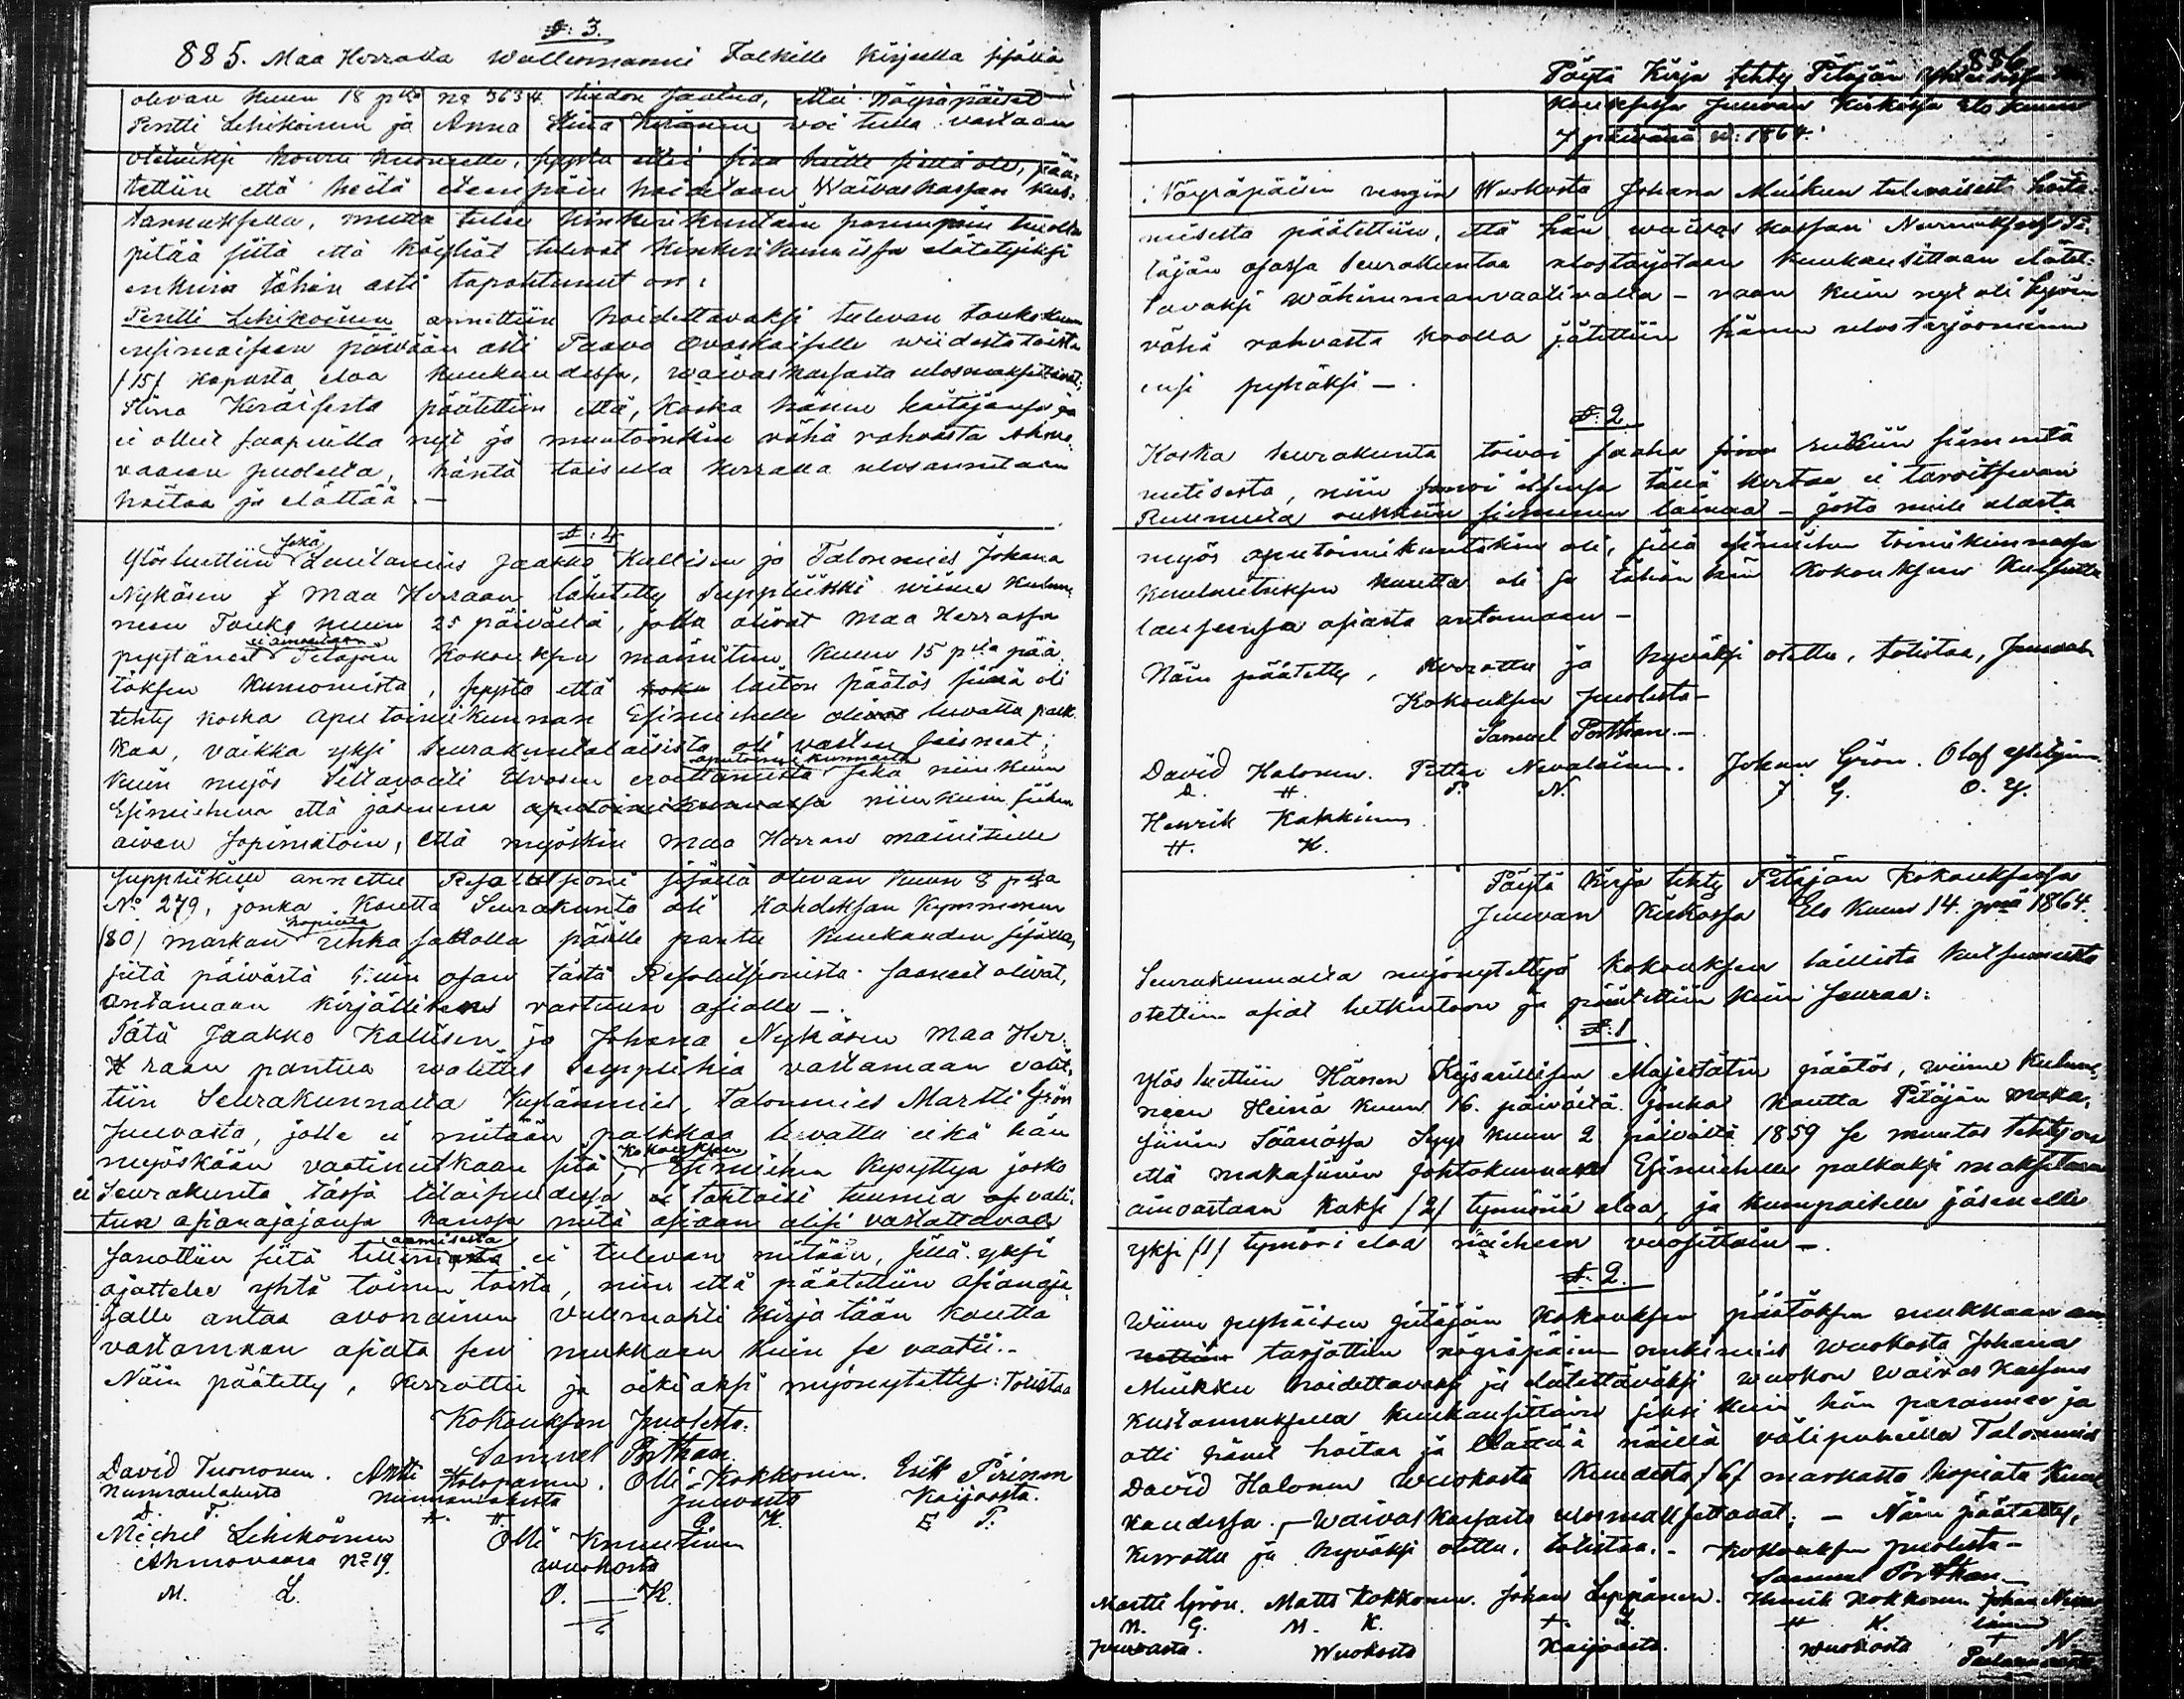 §: 3.
885. Maa Herralta Wallenmanni Falkille kirjulla sisällä
olevan kuun 18 p:lta no 3634. tiedon saatua, että Köyräpäiset
Pentti Lehikoinen ja Anna Stina Keränen voi tulla vastaan
otetuksi kouru huoneelle, syystä että siaa heille siellä ole, pää-
tettiin että heitä eteenpäin hoidetaan Waivaskassan kus-
tannuksella, mutta tulee kinkerikuntain parempaa huolta
pitää siitä että köyhät tulevat kinkerikunnissa elätetyiksi
enkuin tähän asti tapahtunut on.
Pentti Lehikoinen annettiin hoidettavaksi tulevan toukokuun
ensimaiseen päivään asti Paavo Ovaskaiselle wiidestätoista
/15/ kapasta eloa kuukaudessa, waivaskassasta ulosmaksettavat;
Stina Keräisestä päätettiin että, koska hänen hoitajansa ja
ei ollut saapuilla nyt ja muutoinkin vähä rahvasta Ahmo-
vaaran puolelta, häntä toisella kerralla ulosannetaan
hoitaa ja elättää.—
§: 4
Ylösluettiin sekä Lautamies Jaakko Kallisen ja Talonmies Johana
Nykäsen Maa Herraan lähetetty Supplikki wiime kulunu-
neen Touko kuun 25 päivältä, jolla olivat Maa Herrassa
pyytäneet ei ainoastaan Pitäjän Kokouksen mainitun kuun 15 p:nä pää-
töksen kumomista, syystä että laiton päätös siinä oli
tehty koska apu toimikunnan Esimiehelle olivat luvattu palk-
kaa, vaikka yksi Seurakuntalaisista oli vastaan seisneet;
kuin myös Siltavouti Ervasen eroittamista aputoimikunnasta sekä niin kuin
Esimiehenä että jäsenenä aputoimikunnassa niinkuin siihen
aivan sopimatoin, että myöskin Maa Herran mainitulle
Supplikille annettu Resolutsioni sisällä olevan kuun 8 p:ltä
No 279, jonka kautta Seurakunta oli kahdeksan kymmenen
/80/ markan hopiata uhka sakolla päälle pantu kuukauden sisällä,
siitä päivästä kuin osan tästä Resolutsionista saaneet olivat,
antamaan kirjällisen vastuun asialle —.
Tätä Jaakko Kallisen ja Johana Nykäsen Maa Her-
raan pantua walitus Supplikkia vastamaan valit-
tiin Seurakunnalta Kylänmies, Talonmies Martti Grön
Juuvasta, jolle ei mitään palkkaa luvattu eikä hän
myöskään vaatinutkaan sitä Kokouksen Esimiehen kysyttyä josko
ei Seurakunta tässä tilaisuudessa tahtoisi tuumia vali-
tun asianajajansa kanssa mitä asiaan olisi vastattavaa
sanottiin siitä tuumiaamisesta ei tulevan mitään, sillä yksi
ajattelee yhtä toinen toista, niin että päätettiin asianaja-
jalle antaa avonainen valtmahti kirja tään kautta
vastamaan asiata sen mukkaan kuin se vaatii.—
Näin päätetty, kerrottu ja oikiaksi myönytetty: Toistaa
Kokouksen puolesta:
Samuel Porthan.
David Tuononen. Antti Holopainen. Olli Kokkonen. Erik Pirinen
Nunnanlahesta Nunnanlahesta Juuvasta Kajoosta.
D. T. A. H. O. K. E P:
Michel Lehikoinen Olli Knuutinen
Ahmovaara No 19. wuokosta
M. L. O. K.
886
Pöytä Kirja tehty Pitäjän yhteisessä
kouksessa Juuvan Kirkossa Elo kuun
7 päivänä w: 1864.
Nöyräpäisen rengin Wuokosta Johana Muikun tulevaisesta hoita-
misesta päätettiin, että hän waivas kassan Nurmuksessa Pi-
täjän osassa Seurakuntaa ulostarjotaan kuukausittaan elätet-
tavaksi wähimmänvaatiwalla — vaan kuin nyt oli hyvin
vähä rahvasta koolla jätettiin hänen ulostarjoominen
ensi pyhäksi —.
§: 2
Koska Seurakunta toivoi saaha rukiin siementä
uutisesta, niin sanoi itsensä tällä kertaa ei tarvitsevan
Ruununlta rukkiin siemenen lainaa — josta mielesta
myös aputoimikuntakin oli, sillä esimiehen toimikunnassa
kuulutuksen kautta oli ja tähän kin kokouksen kutsuttu
lausunsa asiasta antamaan —
Näin päätetty, kerrottu ja hyväksi otettu, todistaa, Juuvast
Kokouksen puolesta —
Samuel Porthan.—
David Halonen. Petter Nevalainen. Johan Grön. Olof Ylitynen
D. H. P. N. J G. O. Y.
Henrik Kokkinen
H. K.
Pöytä Kirja tehty Pitäjän Kokouksessa
Juuvan Kirkossa Elo kuun 14. p:nä 1864.
Seurakunnalta myönnytettyä kokouksen laillista kutsumusta
otettiin asiat hetkintoon ja päätettiin kuin seuraa:
§: 1
Ylös luettiin Hänen Keisarillisen Majestätin päätös, wiime kulunu-
neen Heinä kuun 16. päivältä jonka kautta Pitäjän maka-
siinin Säänössä Syys kuun 2 päivältä 1859 se muutos tehty on
että makasiinin johtokunnan Esimiehelle palkaksi maksetaan
ainoastaan kaksi /2/ tynnöriä eloa, ja kumpaiselle jäsenelle
yksi /1/ tynnöri eloa miehen vuosittain —.
§: 2.
Wiime pyhäisen pitäjän kokouksen päätöksen mukkaan an-
nettiin tarjottiin nöyräpäinen renkimies Wuokosta Johana
Muikku hoidettavaksi ja elätettäväksi wuokon Waivas Kassans
kustannuksella kuukausittain siksi kuin hän paranee ja
otti hänet hoitaa ja Elättää näillä välipuheilla Talonmies
David Halonen Wuokosta kuudesta /6/ markasta hopiata kuu-
kaudessa. — Waivas Kassasta ulosmaksettavat; — Näin päätetty,
kerrottu ja hyväksi otettu, todistaa.— Kokouksen puolesta —
Samuel Porthan —
Martti Grön. Matts Kokkonen. Johan Leppänen. Henrik Kokkonen Johan Neva-
M. G. M. K. J. L. H K. lainen
Juuvasta. Wuokosta Kajoosta. Wuokosta J N.